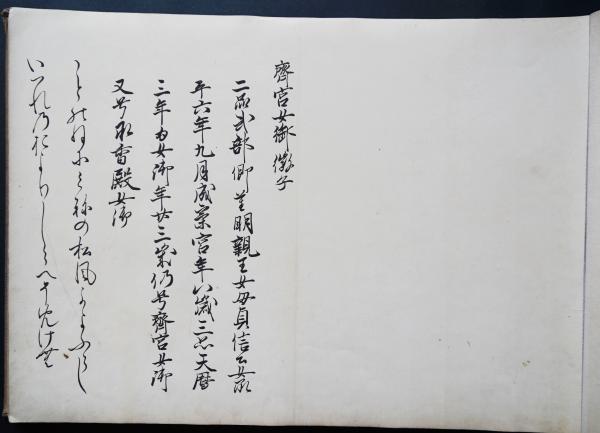 齋宮女御徽子
二品式部卿重明親王女母貞信公女承
平六年九月為齋宮年八歳三品天暦
三年為女御年廿三歳仍号齋宮女御
又号承香殿女御
ことのねにみねの松風かよふらし
いつれのおよりしらへそめけむ